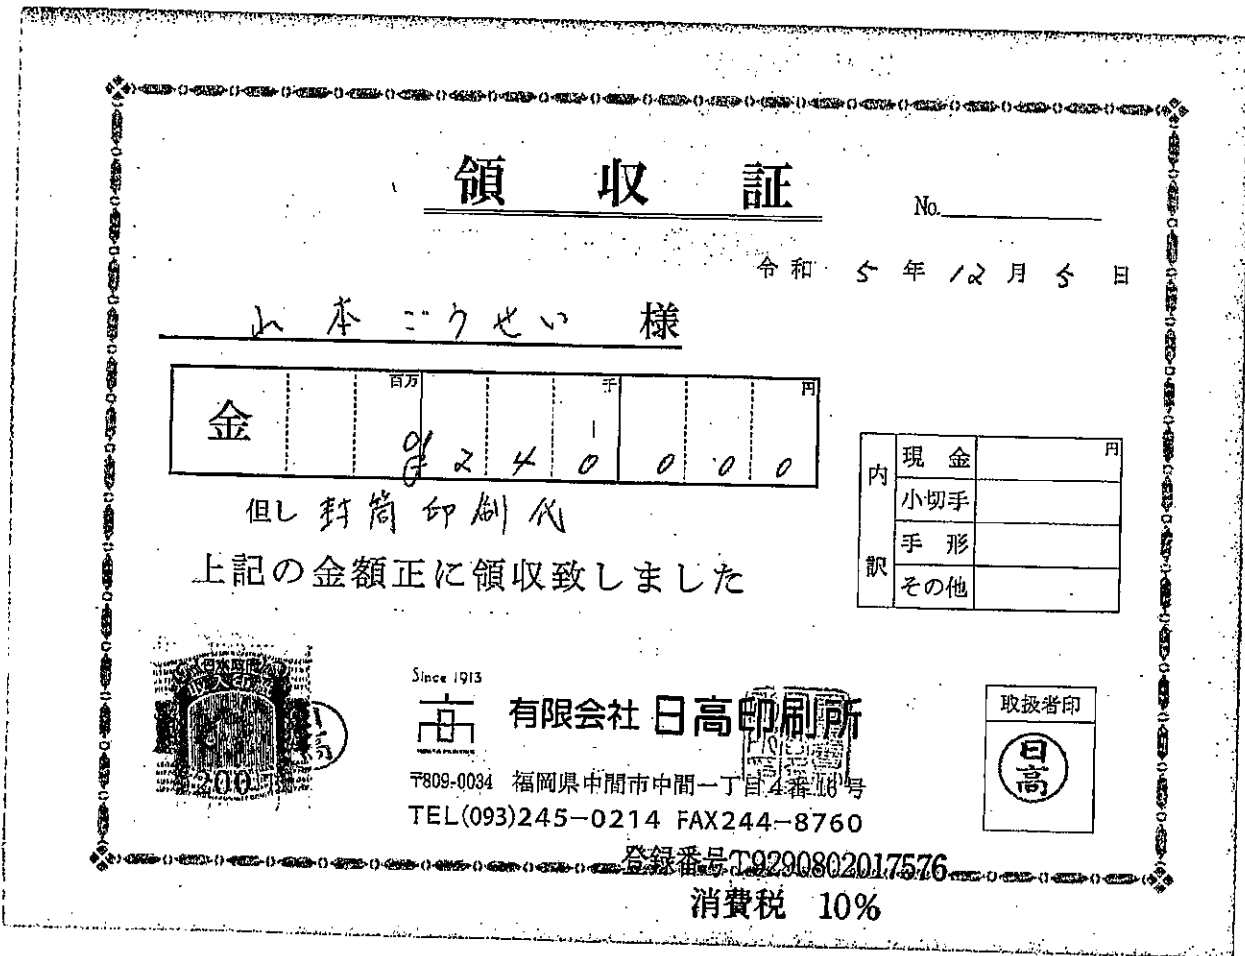 領収証
No.
令和 5 年 12 月 5 日
山本ごうせい 様
金 百万 千 円
¥240,000
但し 封筒印刷代
上記の金額正に領収致しました
内訳
現金 円
小切手
手形
その他
日本政府
収入印紙
200
日高
Since 1913
有限会社 日高印刷所
〒809-0034 福岡県中間市中間一丁目4番16号
TEL(093)245-0214 FAX244-8760
取扱者印
日高
登録番号T9290802017576
消費税 10%